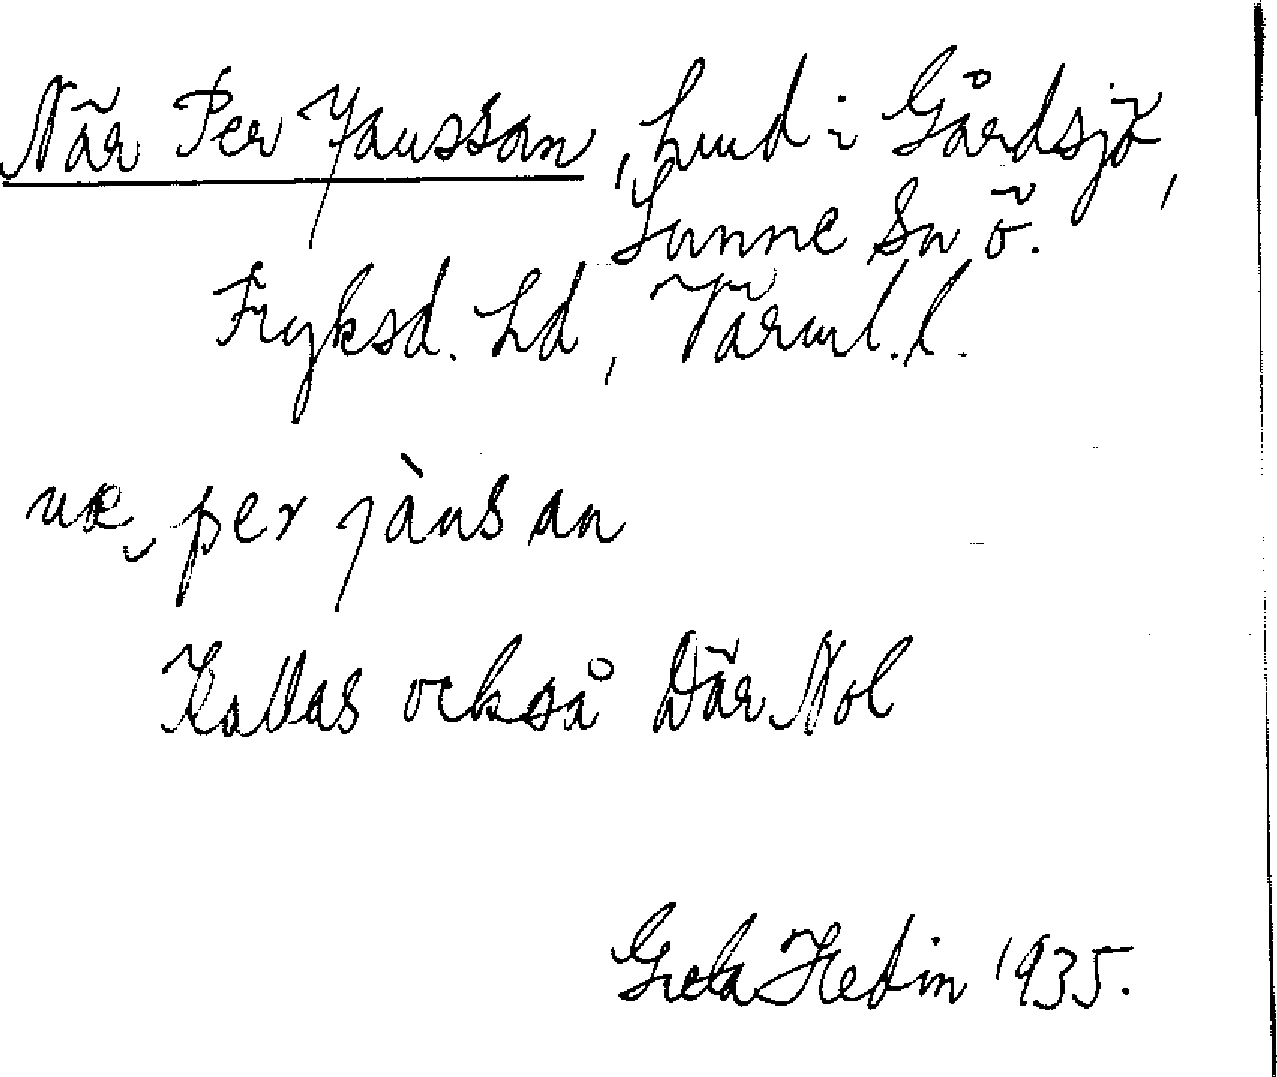 När Per Jansson, Lund i Gårdsjö,
Sunne sn ö.
Fryksd. hd, Värml. l.
næ per jànsan
Kallas också Där Nol
Greta Hedin 1935.